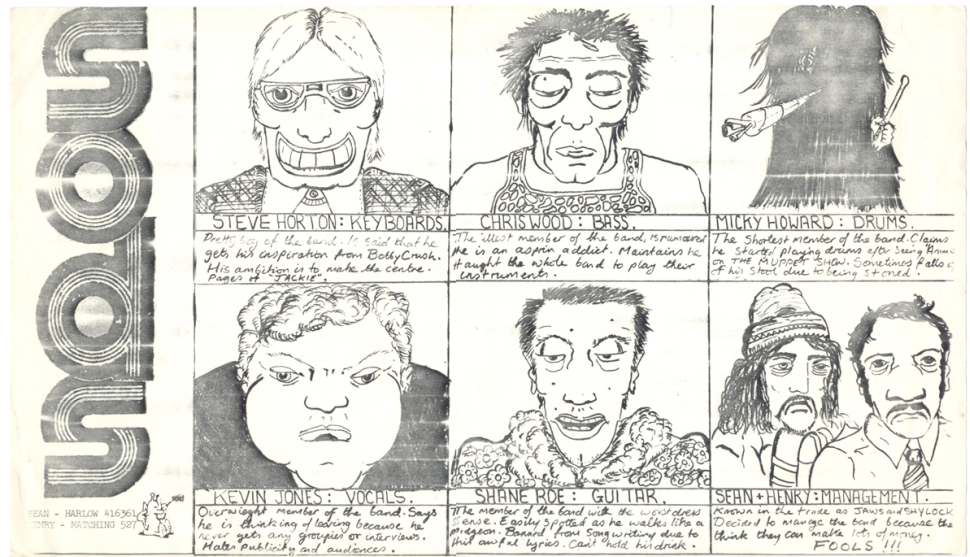 STEVE HORTON: KEYBOARDS.
Pretty boy of the band. Is said that he
gets his inspiration from Bobby Crush.
His ambition is to make the centre-
pages of "JACKIE".
CHRIS WOOD: BASS.
The illest member of the band, is rumoured
He is an asprin addict. Maintains he
taught the whole band to play their
instruments.
MICKY HOWARD: DRUMS.
The Shortest member of the band. Claims
he started playing drums after seeing
on THE MUPPET SHOW. Sometimes falls
of his stool due to being stoned.
KEVIN JONES: VOCALS.
Overweight member of the band. Says
he is thinking of leaving because he
never gets any groupies or interviews.
Hates publicity and audiences.
SHANE ROE: GUITAR.
The member of the band with the worst dress
sense. Easily spotted as he walks like a
pidgeon. Banned from songwriting due to
his awful lyrics. Can't hold his drink.
SEAN + HENRY: MANAGEMENT.
Known in the trade as JAWS and SHYLOCK
Decided to manage the band because the
think they can make lots of money.
FOOLS !!!
SEAN - HARLOW 416361
HENRY - MATCHING 527